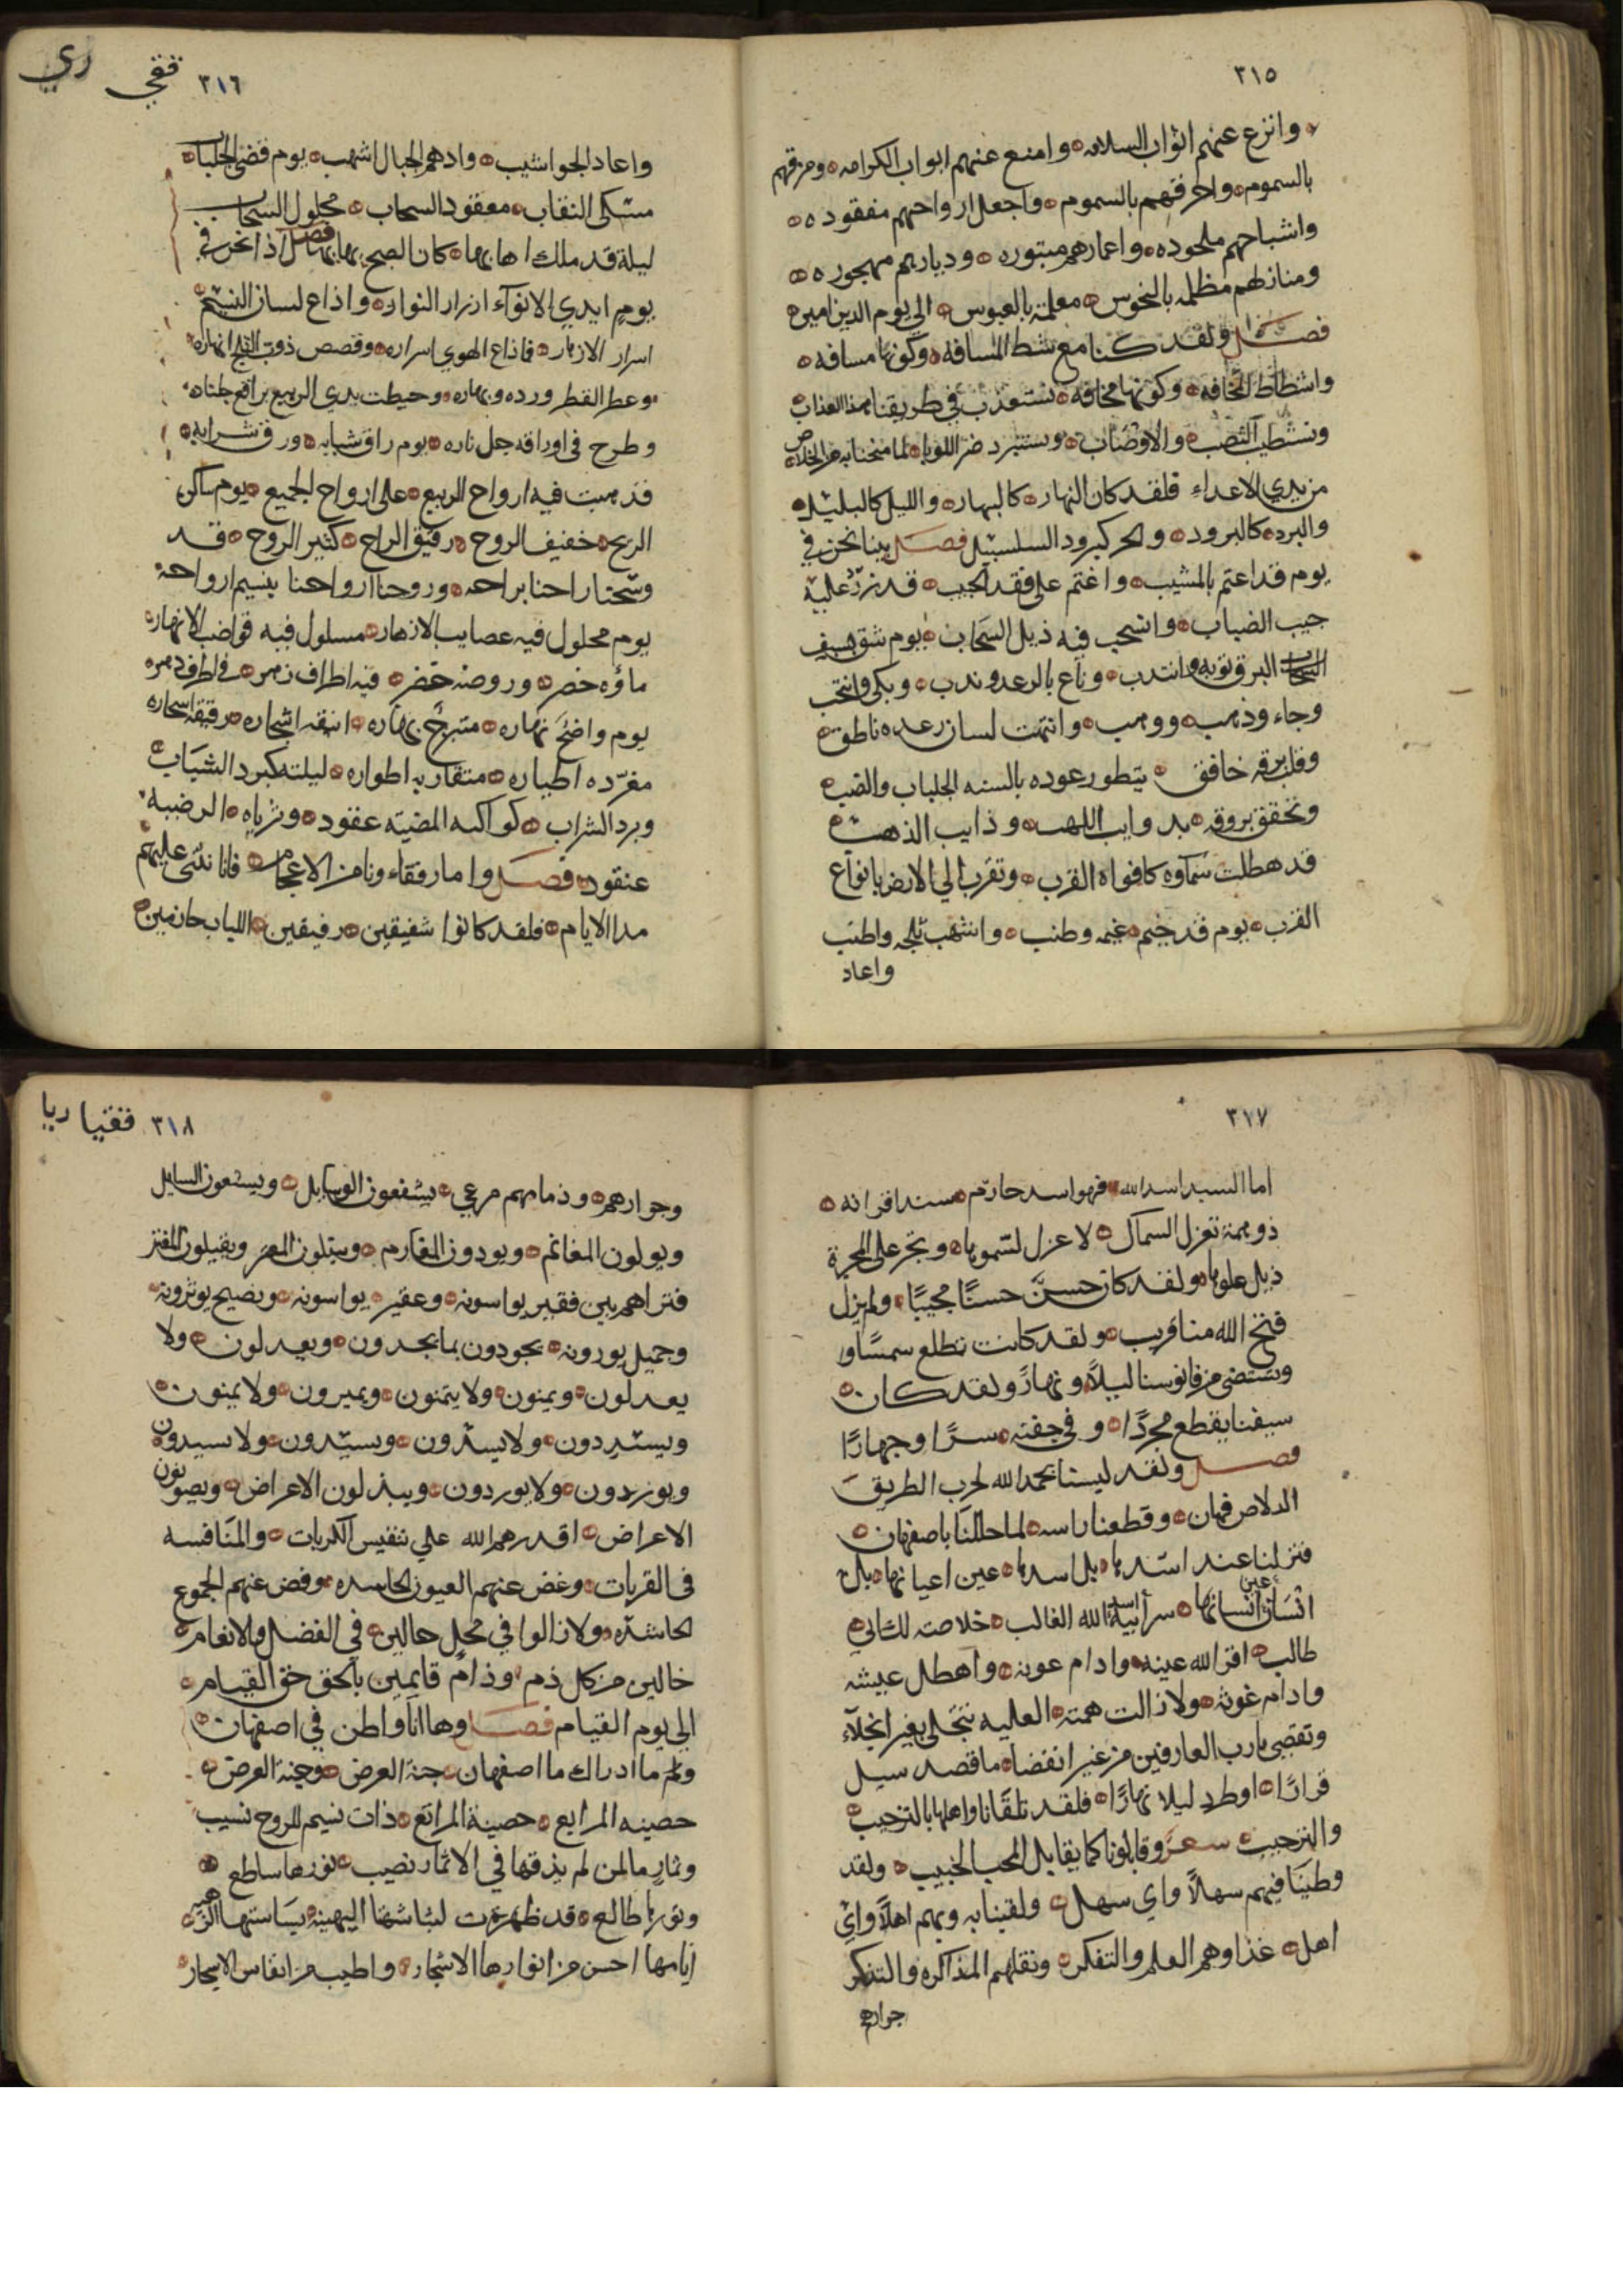 ٣١٥
وانزع عنهم اثواب السلامه وامنع عنهم ابواب الكرامه ومزقهم
بالسموم واحرقهم بالسموم واجعل ارواحهم مفقوده
واشباحهم ملحوده واعمارهم مبتوره وديارهم مهجوره
ومنازلهم مظلمه بالنحوس معلمة بالعبوس الى يوم الدين امين
فصل ولقد كنا مع شط المسافه وكونها مسافه
واشطاط المخافه وكونها مخافه نستعذب في طريقنا هذا العذاب
ونستطيب النصب والاوصاب ونستبرد حر اللوبا لما منحنا به من الخلاص
من يدي الاعداء فلقد كان النهار كالبهار والليل كالبليل
والبرد كالبرود والحر كبرود السلسبيل فصل بينا نحن في
يوم قد اعتم بالمشيب واغتم على فقد الحبيب قد زر عليه
جيب الضباب وانسحب فيه ذيل السحاب يوم شق بسيف
البرق ثوبه وانتدب وناع بالرعد وندب وبكى وانتحب
وجاء وذهب ووهب وانتهت لسان رعده ناطق
وقلب برقه خافق يتطور عوده بالسنه الجلباب والضب
وتخفق بروقه بدوايب اللهب وذايب الذهب
قد هطلت سماوه كافواه القرب وتقرب الى الارض بانواع
القرب يوم قد خيم غيمه وطنب وانشهب ثلجه واطنب
واعاد
٣١٦ ففي ري
واعاد الجو اشيب وادهم الجبال اشهب يوم فضي الجلباب
مسكي النقاب معقود السحاب محلول السحاب
ليلة قد ملك اهابها كان الصبح بها بها فصل اذا نحن في
يوم ايدي الانوآء ازرار النوار واذاع لسان النسيم
اسرار الازهار فاذاع الهوى اسراره وقصص ذوب الثلج انهاره
وعطر القطر ورده وبهاره وحيطت يدي الربيع براقع جلناه
وطرح في اوراقه جل ناره يوم راق شبابه ورق شرابه
قد هبت فيه ارواح الربيع على ارواح الجميع يوم ساكن
الريح خفيف الروح رقيق الراح كثير الروح قد
وسحنا راحنا براحه وروحنا ارواحنا بنسيم ارواحه
يوم محلول فيه عصايب الازهار مسلول فيه قواضب الانهار
ماؤه خصر وروضه خضر فيه اطراف زهر في اطراف دهر
يوم واضح نهاره متبرج بهاره انيقه اشجاره رقيقه اسحاره
مغرده اطياره متقاربه اطواره ليلته كبرد الشباب
وبرد الشراب كواكبه المضيئه عقود وثرياه الرضيه
عنقود فصل واما رفقاءونا من الاعجام فانا نثني عليهم
مدا الايام فلقد كانوا شفيقين رفيقين اللباب حازمين
٣١٧
اما السيد اسد الله فهو اسد حازم مسند اقرانه
ذو همة تعزل السماك الاعزل لسموها وتجر على المجرة
ذيل علوها ولقد كان حسن حسنا مجيبا ولم يزل
فتح الله منا قريب ولقد كانت تطلع سمسا و
ونستضي من فانوسنا ليلا ونهارا ولقد كان
سيفنا يقطع مجردا وفي جفنه سرا وجهارا
فصل ولقد ليسنا بحمد الله لحرب الطريق
الدلاص فهان وقطعنا راسه لما حللنا باصفهان
فنزلنا عند اسدها بل اسدها عين اعيانها بل
انسان عين انسانها سر ابيه اسد الله الغالب خلاصة لك
طالب اقر الله عينه وادام عونه واهطل عيشه
وادام غوثه ولا زالت همته العليه تتجلى بغير انجلآء
وتقضي مارب العارفين من غير انقضا ما قصد سيل
قرارا او طرد ليلا نهارا فلقد تلقانا واهلها بالترحيب
والترحيب شعر وقابلونا كما يقابل المحب الحبيب ولقد
وطينا فيهم سهلا واي سهل ولقينا به وبهم اهلا واي
اهل غذاوهم العلم والتفكر ونقلهم المذاكره والتذكر
جوارهم
٣١٨ ففيا ريا
وجوارهم وذمامهم مرعي يشفعون الوسايل ويسعون السايل
ويولون المغانم ويودون المغارم ويبتلون المعر ويقيلون المفتر
فتراهم بين فقير يواسونه وعقير يواسونه ونصيح يوثرونه
وجميل يورونه يجودون بما يجدون ويعدلون ولا
يعدلون ويمنون ولا يتمنون ويميرون ولا يمنون
ويستردون ولا يسترون ويسيدون ولا سيدون
ويوردون ولا يوردون ويبذلون الاعراض ويصونون
الاعراض اقدرهم الله على تنفيس الكربات والمنافسه
في القربات وغض عنهم العيون الحاسده وفض عنهم الجموع
الحاشده ولا زالوا في محل حالين في الفضل والانعام
خالين من كل ذم وذام قايمين بالحق حق القيام
الى يوم القيام فصل وها انا واطن في اصفهان
ولم ما ادراك ما اصفهان جنة العرض وجنة العرض
حصينه المرابع حصينة المراتع ذات نسيم للروح نسيب
وثمار مالمن لم يذقها في الاثمار نصيب نورها ساطع
ونورها طالع قد ظهرت لبشاشتها البهيه بساستها الزهيه
ايامها احسن من انوارها الاشجار واطيب من انفاس الاسحار